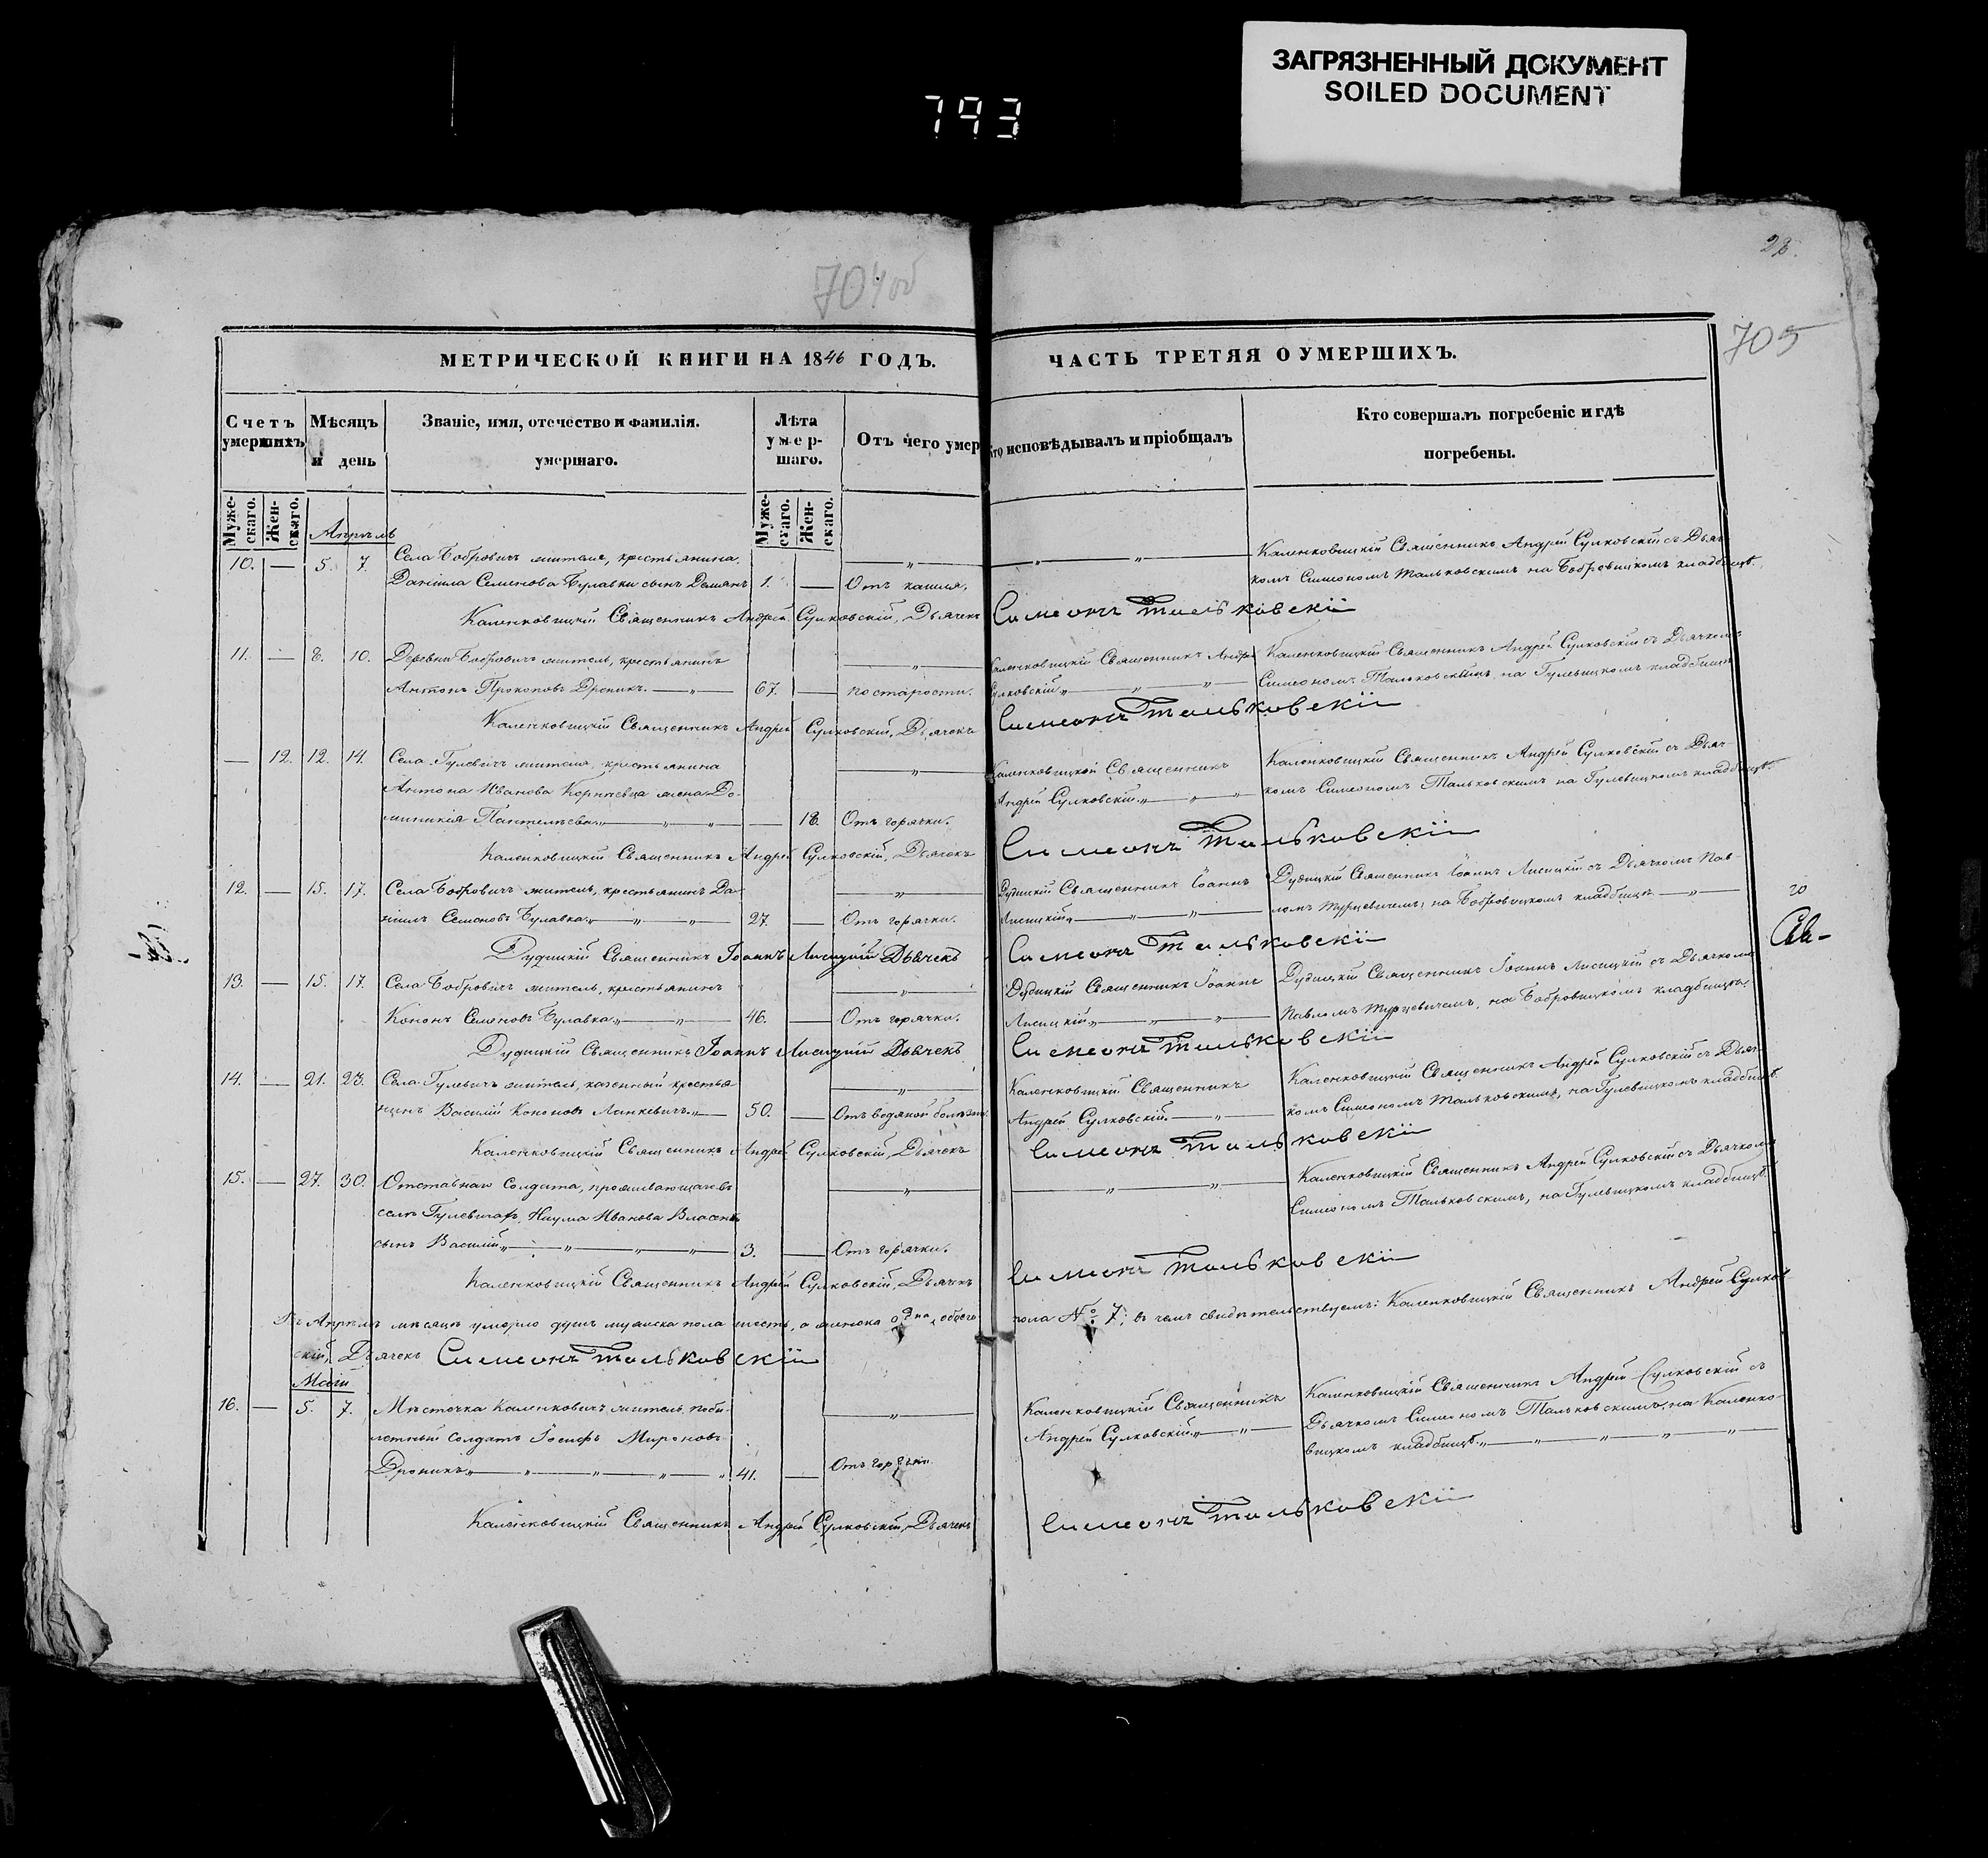 ЗАГРЯЗНЕННЫЙ ДОКУМЕНТ
SOILED DOCUMENT
793
28.
704 об
705
МЕТРИЧЕСКОЙ КНИГИ НА 1846 ГОДЪ.
ЧАСТЬ ТРЕТЯЯ О УМЕРШИХЪ.
Счетъ умершихъ
Мѣсяцъ и день
Званіе, имя, отечество и фамилія. умершаго.
Лѣта умер-шаго.
Отъ чего умер
Кто исповѣдывалъ и пріобщалъ
Кто совершалъ погребеніе и гдѣ погребены.
Муже-скаго.
Жен-скаго.
Муже-скаго.
Жен-скаго.
Апрѣль
10. — 5. 7. Села Бобровичъ жителя, крестьянина — „ — — „ — „ — Каленковицкій Священникъ Андрей Сулковскій съ Дьяч-
Даніила Семенова Булавки сынъ Демянъ 1. — Отъ кашля. комъ Симеономъ Тальковскимъ на Бобровицкомъ кладбищѣ.
Каленковицкій Священникъ Андрей Сулковскій, Дьячекъ Симеонъ Тальковскій
11. — 8. 10. Деревни Бобровичъ житель, крестьянинъ — „ — Каленковицкій Священникъ Андрей Каленковицкій Священникъ Андрей Сулковскій съ Дьячкомъ
Антонъ Прокоповъ Дроникъ. — „ — 67. — По старости. Сулковскій „ — „ — „ — Симеономъ Тальковскимъ, на Гулевицкомъ кладбищѣ
Каленковицкій Священникъ Андрей Сулковскій, Дьячекъ Симеонъ Тальковскій
— 12. 12. 14. Села Гулевичъ жителя, крестьянина — „ — Каленковицкій Священникъ Каленковицкій Священникъ Андрей Сулковскій съ Дьяч-
Антона Иванова жена До- Андрей Сулковскій „ — „ — „ комъ Симеономъ Тальковскимъ на Гулевицкомъ кладбищѣ.
миникія Пантелѣева „ — „ — „ — — 18. Отъ горячки.
Каленковицкій Священникъ Андрей Сулковскій, Дьячекъ Симеонъ Тальковскій
12. — 15. 17. Села Бобровичъ житель, крестьянинъ Да- — „ — Дудицкій Священникъ Іоаннъ Дудицкій Священникъ Іоаннъ Лисицкій съ Дьячкомъ Пав-
ніилъ Семеновъ Булавка „ — „ — „ — 27. — Отъ горячки. Лисицкій „ — „ — „ — ломъ Турцевичемъ, на Бобровицкомъ кладбищѣ — „ —
Дудицкій Священникъ Іоаннъ Лисицкій Дьячекъ Симеонъ Тальковскій
13. — 15. 17. Села Бобровичъ житель, крестьянинъ — „ — Дудицкій Священникъ Іоаннъ Дудицкій Священникъ Іоаннъ Лисицкій съ Дьячкомъ
Кононъ Семеновъ Булавка „ — „ — 46. — Отъ горячки. Лисицкій „ — „ — „ — Павломъ Турцевичемъ, на Бобровицкомъ кладбищѣ
Дудицкій Священникъ Іоаннъ Лисицкій Дьячекъ Симеонъ Тальковскій
14. — 21. 23. Села Гулевичъ житель, казенный крестья- — „ — Каленковицкій Священникъ Каленковицкій Священникъ Андрей Сулковскій съ Дьяч-
нинъ Василій Кононовъ Ланкевичъ „ — 50. — Отъ водяной болѣзни. Андрей Сулковскій. — „ — комъ Симеономъ Тальковскимъ, на Гулевицкомъ кладбищѣ.
Каленковицкій Священникъ Андрей Сулковскій, Дьячекъ Симеонъ Тальковскій
15. — 27. 30. Отставнаго Солдата, проживающаго въ — „ — — „ — „ — Каленковицкій Священникъ Андрей Сулковскій съ Дьячкомъ
селѣ Гулевичахъ, Наума Иванова Симеономъ Тальковскимъ, на Гулевицкомъ кладбищѣ.
сынъ Василій „ — „ — „ — „ — 3. — Отъ горячки.
Каленковицкій Священникъ Андрей Сулковскій, Дьячекъ Симеонъ Тальковскій
Въ Апрѣлѣ мѣсяцѣ умерло душъ мужеска пола шесть, а женска одна, общего пола № 7; въ чемъ свидѣтельствуемъ: Каленковицкій Священникъ Андрей Сулков-
скій, Дьячекъ Симеонъ Тальковскій
Маій
16. — 5. 7. Мѣстечка Каленковичъ житель, поби- — „ — Каленковицкій Священникъ Каленковицкій Священникъ Андрей Сулковскій съ
летный Солдатъ Іосифъ Мироновъ Андрей Сулковскій „ — „ — Дьячкомъ Симеономъ Тальковскимъ, на Каленко-
Дроникъ „ — „ — „ — „ — „ 41. — Отъ горячки. вицкомъ кладбищѣ „ — „ — „ — „ — „ —
Каленковицкій Священникъ Андрей Сулковскій, Дьячекъ Симеонъ Тальковскій